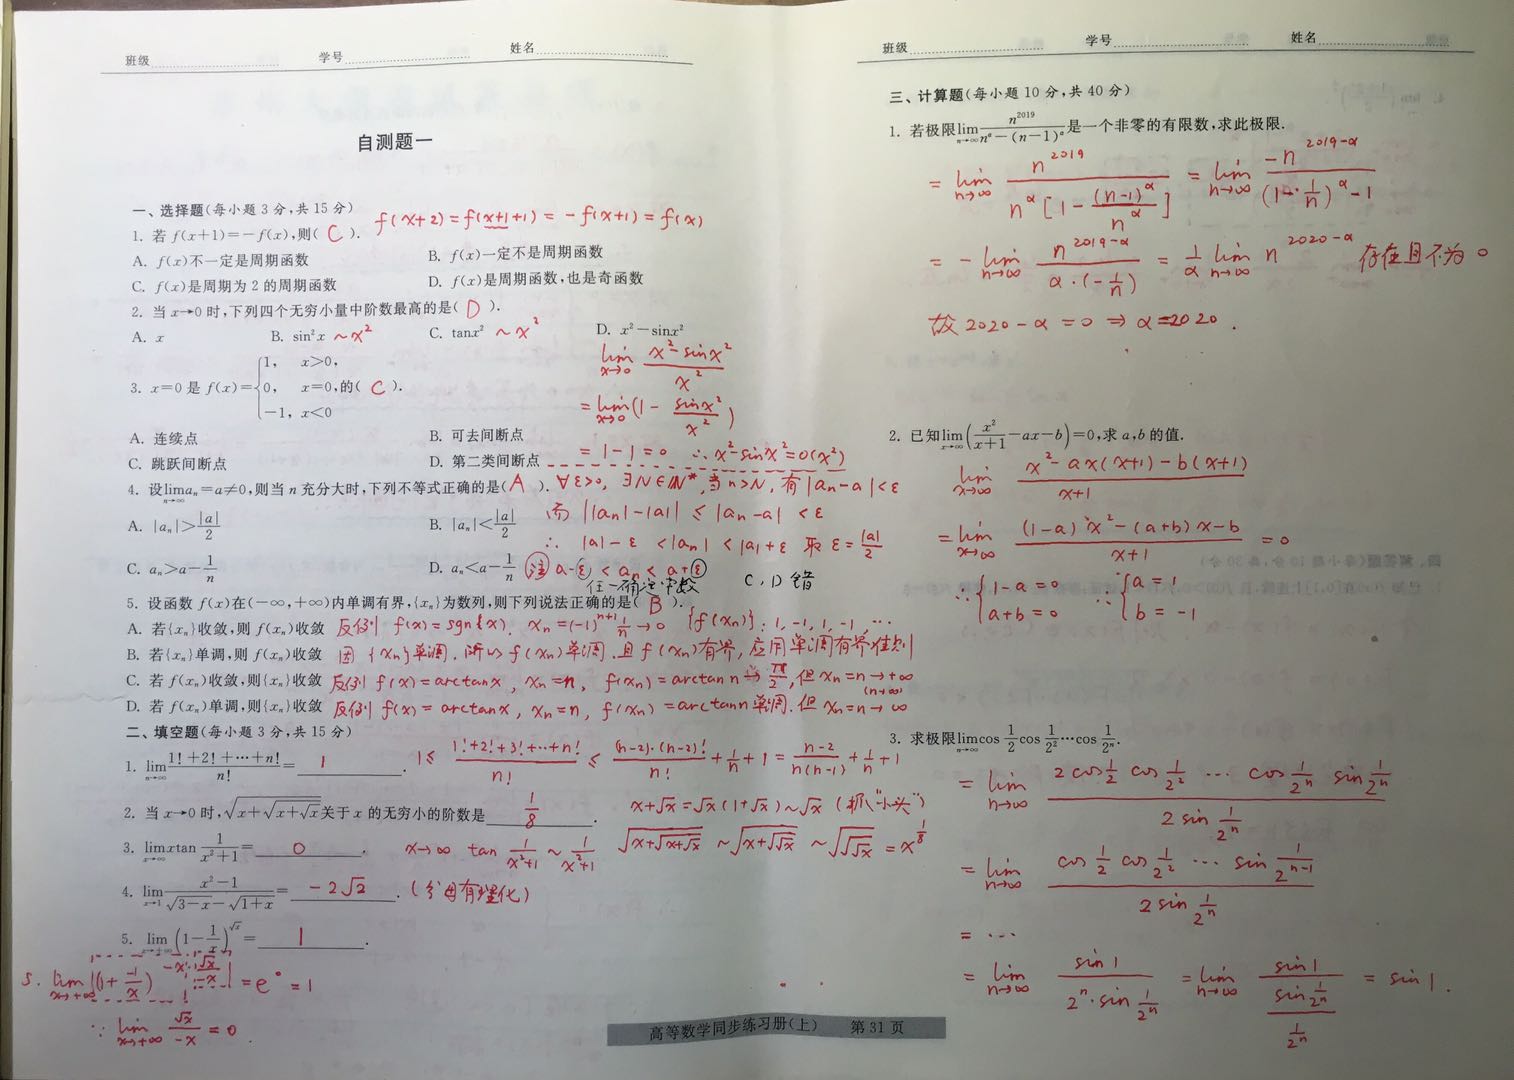 班级 学号 姓名
自测题一
一、选择题(每小题 3 分,共 15 分)
f(x+2)=f(x+1+1)=-f(x+1)=f(x)
1. 若 f(x+1)=-f(x),则( C ).
A. f(x)不一定是周期函数 B. f(x)一定不是周期函数
C. f(x)是周期为 2 的周期函数 D. f(x)是周期函数,也是奇函数
2. 当 x→0 时,下列四个无穷小量中阶数最高的是( D ).
A. x B. sin²x ~x² C. tanx² ~x² D. x²-sinx²
lim x→0 (x²-sinx²)/x²
=lim x→0 (1 - sinx²/x²)
=1-1=0 ∴x²-sinx²=o(x²)
3. x=0 是 f(x)={1, x>0, 0, x=0, -1, x<0 的( C ).
A. 连续点 B. 可去间断点
C. 跳跃间断点 D. 第二类间断点
4. 设lim n→∞ aₙ=a≠0,则当 n 充分大时,下列不等式正确的是( A ). ∀ε>0, ∃N∈ℕ*, 当n>N, 有|aₙ-a|<ε
而 ||aₙ|-|a|| ≤ |aₙ-a| <ε
A. |aₙ|>|a|/2 B. |aₙ|<|a|/2
∴ |a|-ε <|aₙ| <|a|+ε 取 ε=|a|/2
C. aₙ>a-1/n D. aₙ<a-1/n 注 a-ε < aₙ < a+ε
任一确定常数 C,D错
5. 设函数 f(x)在(-∞,+∞)内单调有界,{xₙ}为数列,则下列说法正确的是( B ).
A. 若{xₙ}收敛,则 f(xₙ)收敛 反例 f(x)=sgn(x). xₙ=(-1)ⁿ⁺¹ 1/n→0 {f(xₙ)}: 1,-1,1,-1,…
B. 若{xₙ}单调,则 f(xₙ)收敛 因{xₙ}单调.所以f(xₙ)单调.且f(xₙ)有界,应用单调有界准则
C. 若 f(xₙ)收敛,则{xₙ}收敛 反例 f(x)=arctanx, xₙ=n, f(xₙ)=arctan n→π/2,但xₙ=n→+∞ (n→∞)
D. 若 f(xₙ)单调,则{xₙ}收敛 反例 f(x)=arctanx, xₙ=n, f(xₙ)=arctan n单调.但xₙ=n→∞
二、填空题(每小题 3 分,共 15 分)
1. lim n→∞ (1!+2!+…+n!)/n! = 1. 1≤ (1!+2!+3!+…+n!)/n! ≤ (n-2)·(n-2)!/n! + 1/n + 1 = (n-2)/(n(n-1)) + 1/n + 1
2. 当 x→0 时,√(x+√(x+√x))关于 x 的无穷小的阶数是 1/8. x+√x=√x(1+√x)~√x (抓"小头")
√(x+√(x+√x)) ~√(x+√√x) ~√√√x =x^(1/8)
3. lim x→∞ xtan 1/(x²+1) = 0. x→∞ tan 1/(x²+1) ~ 1/(x²+1)
4. lim x→1 (x²-1)/(√(3-x)-√(1+x)) = -2√2. (分母有理化)
5. lim x→+∞ (1-1/x)^√x = 1.
5. lim x→+∞ [(1+ -1/x)^-x]^(√x/-x) =e⁰=1
∵ lim x→+∞ √x/-x =0
班级 学号 姓名
三、计算题(每小题 10 分,共 40 分)
1. 若极限lim n→∞ n²⁰¹⁹/(nᵅ-(n-1)ᵅ)是一个非零的有限数,求此极限.
= lim n→∞ n²⁰¹⁹/(nᵅ[1-(n-1)ᵅ/nᵅ]) = lim n→∞ -n^(2019-α)/((1-1/n)ᵅ-1)
= -lim n→∞ n^(2019-α)/(α·(-1/n)) = 1/α lim n→∞ n^(2020-α) 存在且不为0
故 2020-α=0 ⇒ α=2020.
2. 已知lim x→∞ (x²/(x+1)-ax-b)=0,求 a,b 的值.
lim x→∞ (x²-ax(x+1)-b(x+1))/(x+1)
=lim x→∞ ((1-a)x²-(a+b)x-b)/(x+1) =0
∴{1-a=0 a+b=0 ∴{a=1 b=-1
3. 求极限lim n→∞ cos 1/2 cos 1/2² …cos 1/2ⁿ.
= lim n→∞ (2cos 1/2 cos 1/2² … cos 1/2ⁿ sin 1/2ⁿ)/(2sin 1/2ⁿ)
= lim n→∞ (cos 1/2 cos 1/2² … sin 1/2ⁿ⁻¹)/(2sin 1/2ⁿ)
= …
= lim n→∞ sin1/(2ⁿ·sin 1/2ⁿ) =lim n→∞ sin1/(sin 1/2ⁿ / 1/2ⁿ) = sin1.
高等数学同步练习册(上) 第 31 页